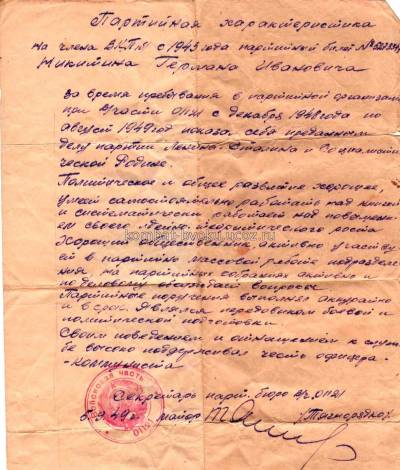 Партийная характеристика
на члена ВКП/б с 1943 года партийный билет №
Никитина Германа Ивановича
за время пребывания в партийной организации
при в/части 01121 с декабря 1948 года по
август 1949 год показал себя преданным
делу партии Ленина-Сталина и Социалисти
ческой Родине.
Политическое и общее развитие хорошее,
умеет самостоятельно работать над книгой
и систематически работает над повышени
ем своего роста
Хороший общественник активно участву
ет в партийно массовой работе подразделе
ния. На партийных собраниях активно и
по деловому обсуждает вопросы.
Партийные поручения выполнял аккуратно
и в срок. Являлся передовиком боевой и
политической подготовки.
Своим поведением и отношением к служ
бе высоко поддерживал честь офицера-
-коммуниста.
Секретарь парт. бюро в/ч 01121
5.9.49г. майор
ВОЙСКОВАЯ ЧАСТЬ
kombat-bvoku.ucoz.ru